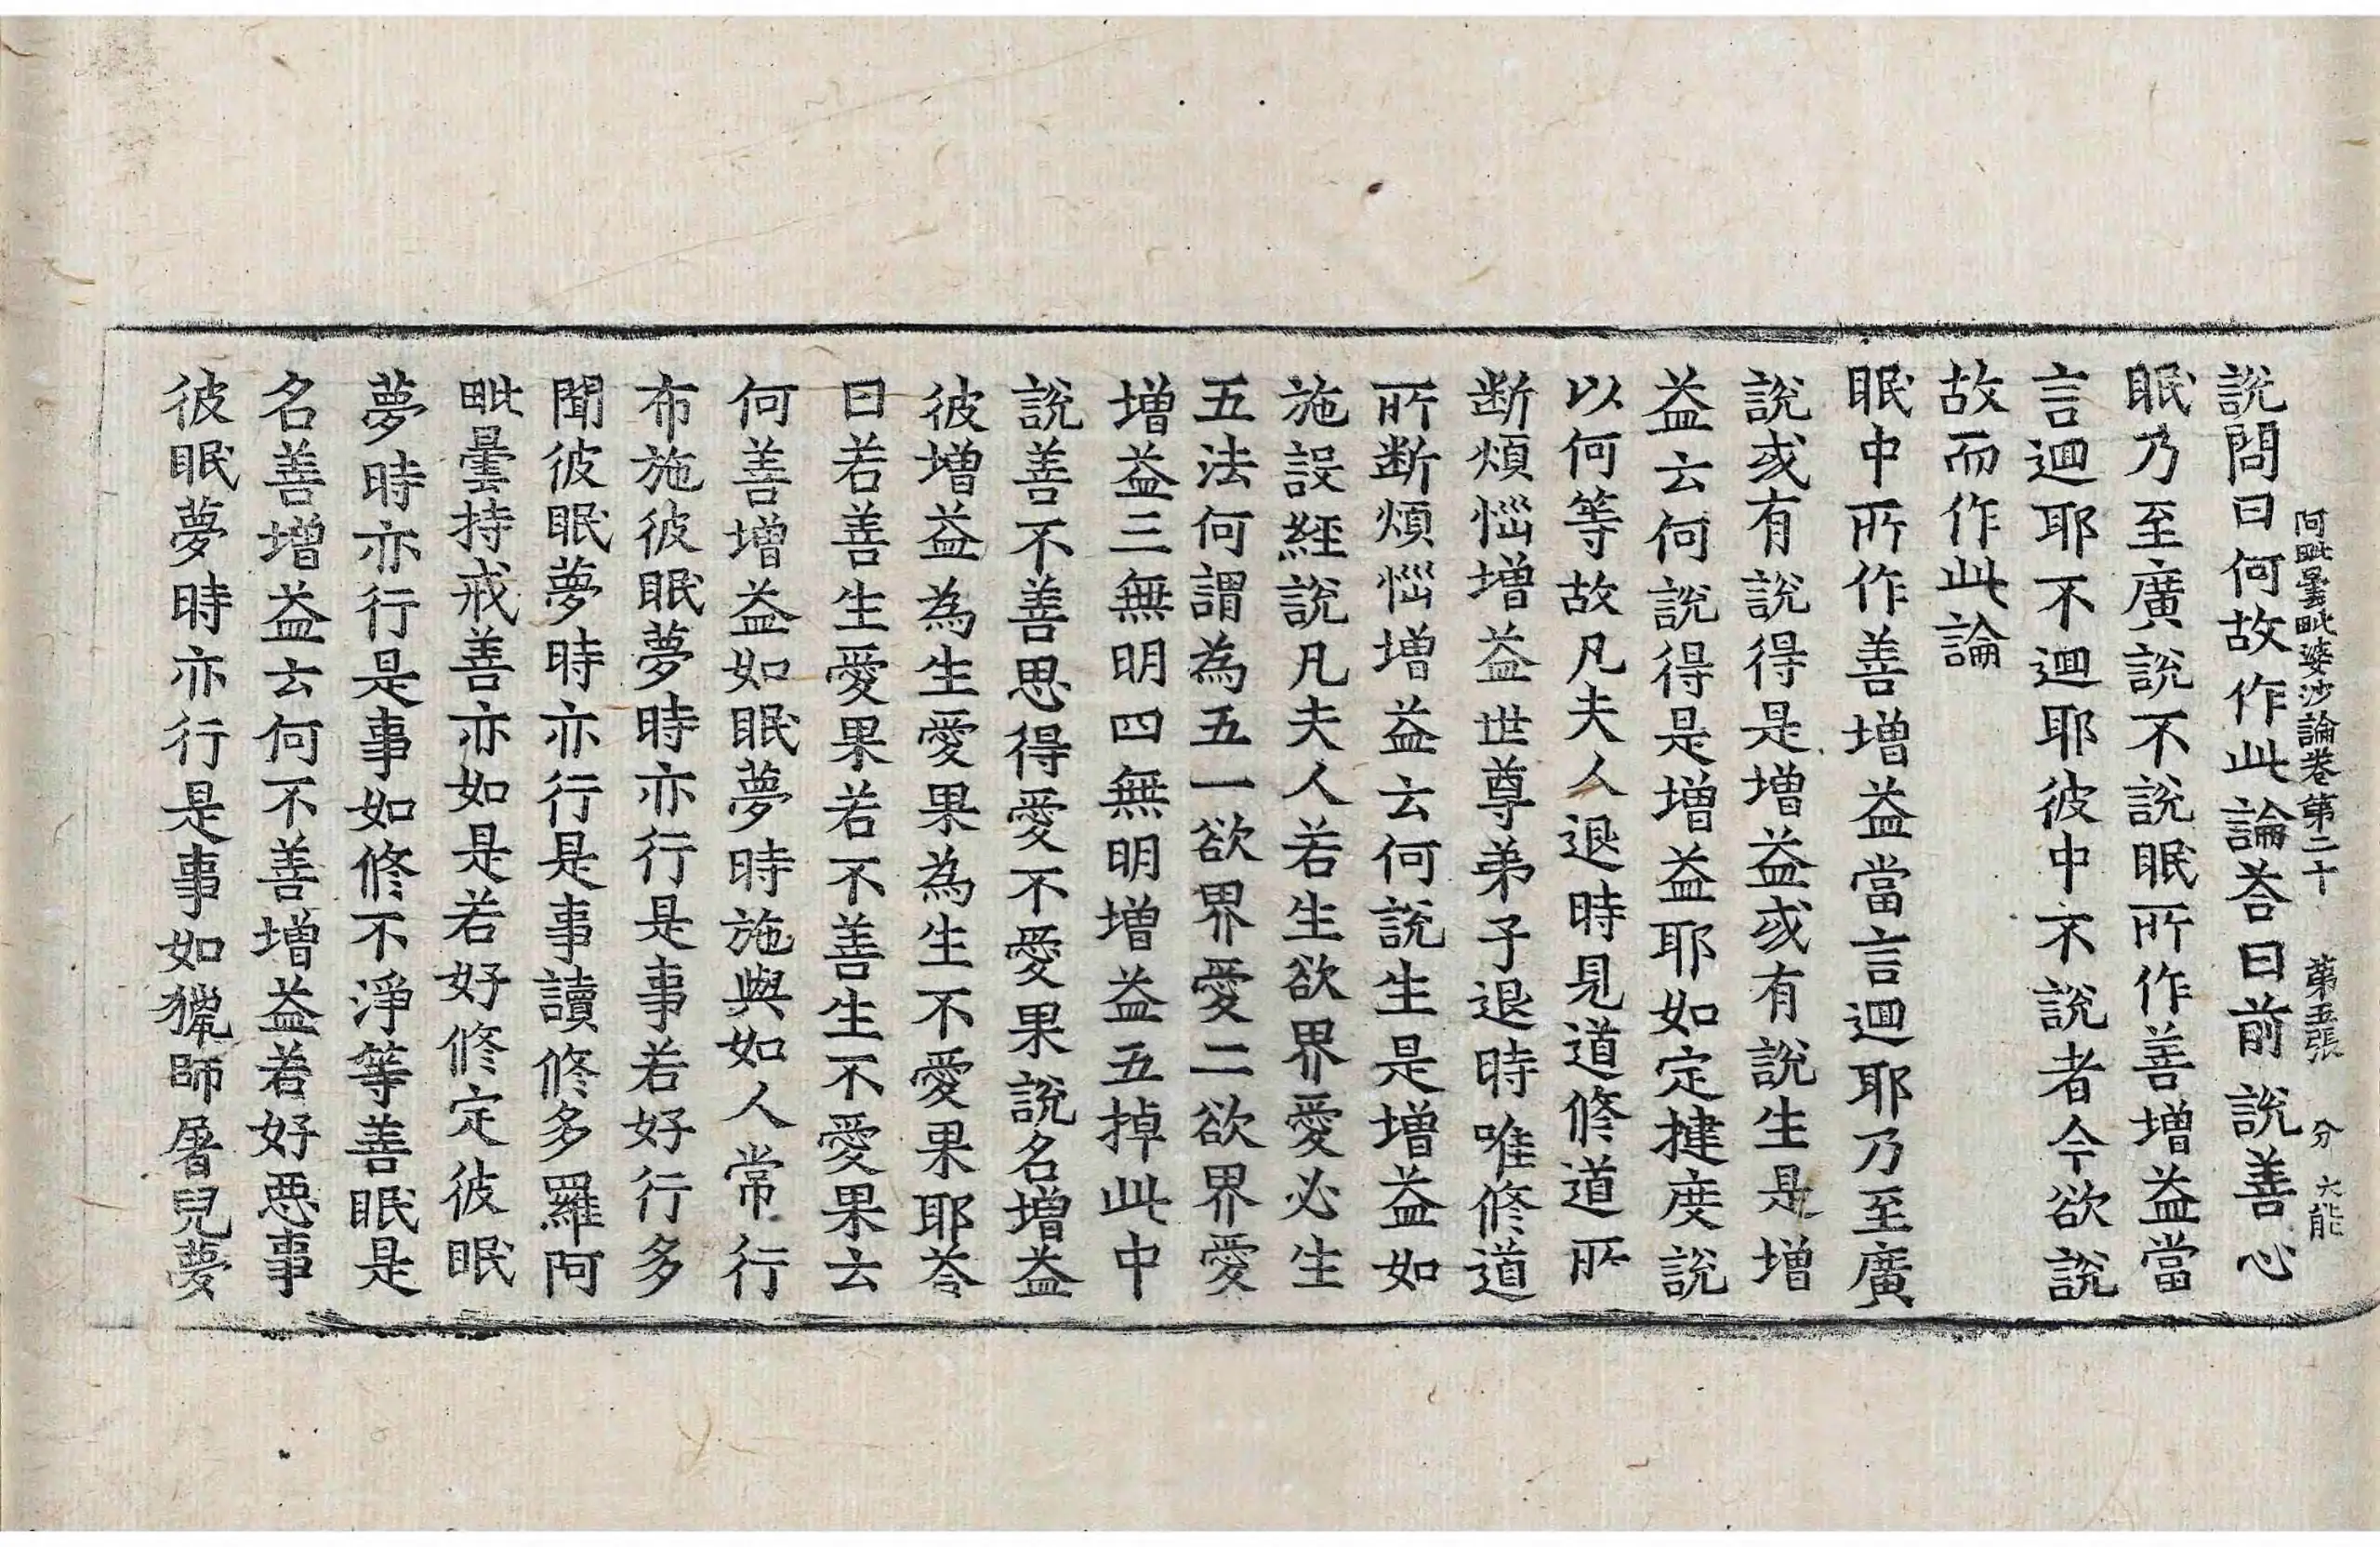 阿毗曇毗婆沙論卷第二十　第五張　分　大能
說問曰何故作此論荅曰前說善心
眠乃至廣說不說眠所作善增益當
言迴耶不迴耶彼中不說者今欲說
故而作此論
眠中所作善增益當言迴耶乃至廣
說或有說得是增益或有說生是增
益云何說得是增益耶如定揵度說
以何等故凡夫人退時見道修道所
断煩惱增益世尊弟子退時唯修道
所断煩惱增益云何說生是增益如
施設經說凡夫人若生欲界愛必生
五法何謂為五一欲界愛二欲界愛
增益三無明四無明增益五掉此中
說善不善思得愛不愛果說名增益
彼增益為生愛果為生不愛果耶荅
曰若善生愛果若不善生不愛果云
何善增益如眠夢時施與如人常行
布施彼眠夢時亦行是事若好行多
聞彼眠夢時亦行是事讀修多羅阿
毗曇持戒善亦如是若好修定彼眠
夢時亦行是事如修不淨等善眠是
名善增益云何不善增益若好惡事
彼眠夢時亦行是事如獵師屠兒夢